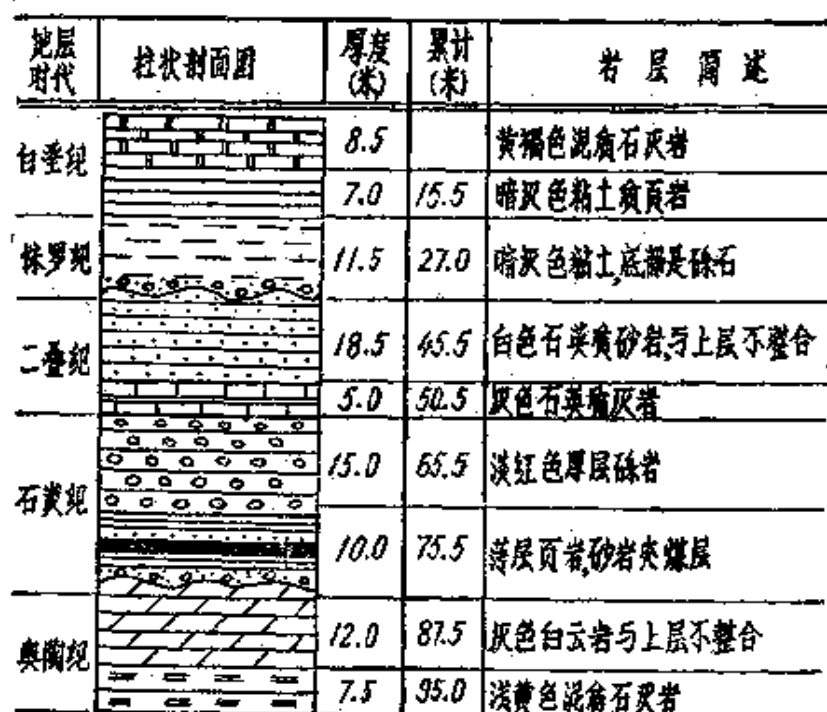 地层时代 柱状剖面图 厚度(米) 累计(米) 岩层简述
白垩纪 8.5 黄褐色泥质石灰岩
7.0 15.5 暗灰色粘土质页岩
侏罗纪 11.5 27.0 暗灰色粘土,底部是砾石
二叠纪 18.5 45.5 白色石英质砂岩,与上层不整合
5.0 50.5 灰色石英质灰岩
石炭纪 15.0 65.5 淡红色厚层砾岩
10.0 75.5 薄层页岩,砂岩夹煤层
奥陶纪 12.0 87.5 灰色白云岩与上层不整合
7.5 95.0 浅黄色泥质石灰岩